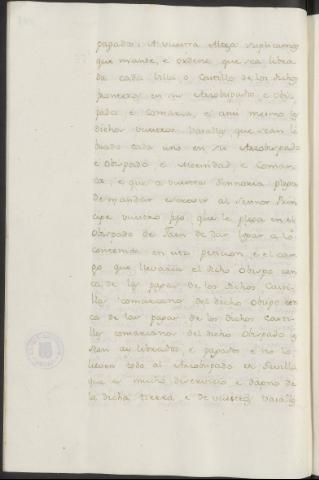 papadas: A vuestra Alteza suplicamos
que mande, e ordene que sea libra
da cada Villa o Castillo de los dichos
fronteros en su Arzobispado, e Obis
pado e Comarca, e ansi mesmo los
dichos vuestros Vasallos que sean li
brados cada uno en su Arzobispado
e Obispado e Merindad e Comar
ca, e que a vuestra Sennoria plega
de mandar escribir al Sennor Prin
cipe vuestro fijo que le plega en el
Obispado de Jaen de dar lugar a lo
contenido en esta peticion, e el car
go que llevaria el dicho Obispo cer
ca de las pagas de los dichos Casti
llos comarcanos del dicho Obispo cer
ca de las pagas de los dichos Casti
llos comarcanos del dicho Obispado
sean ay librados, e pagados e no lo
lieven todo al Arzobispado de Sevilla
que es mucho deservicio e danno de
la dicha tierra e de vuestros Vasallos